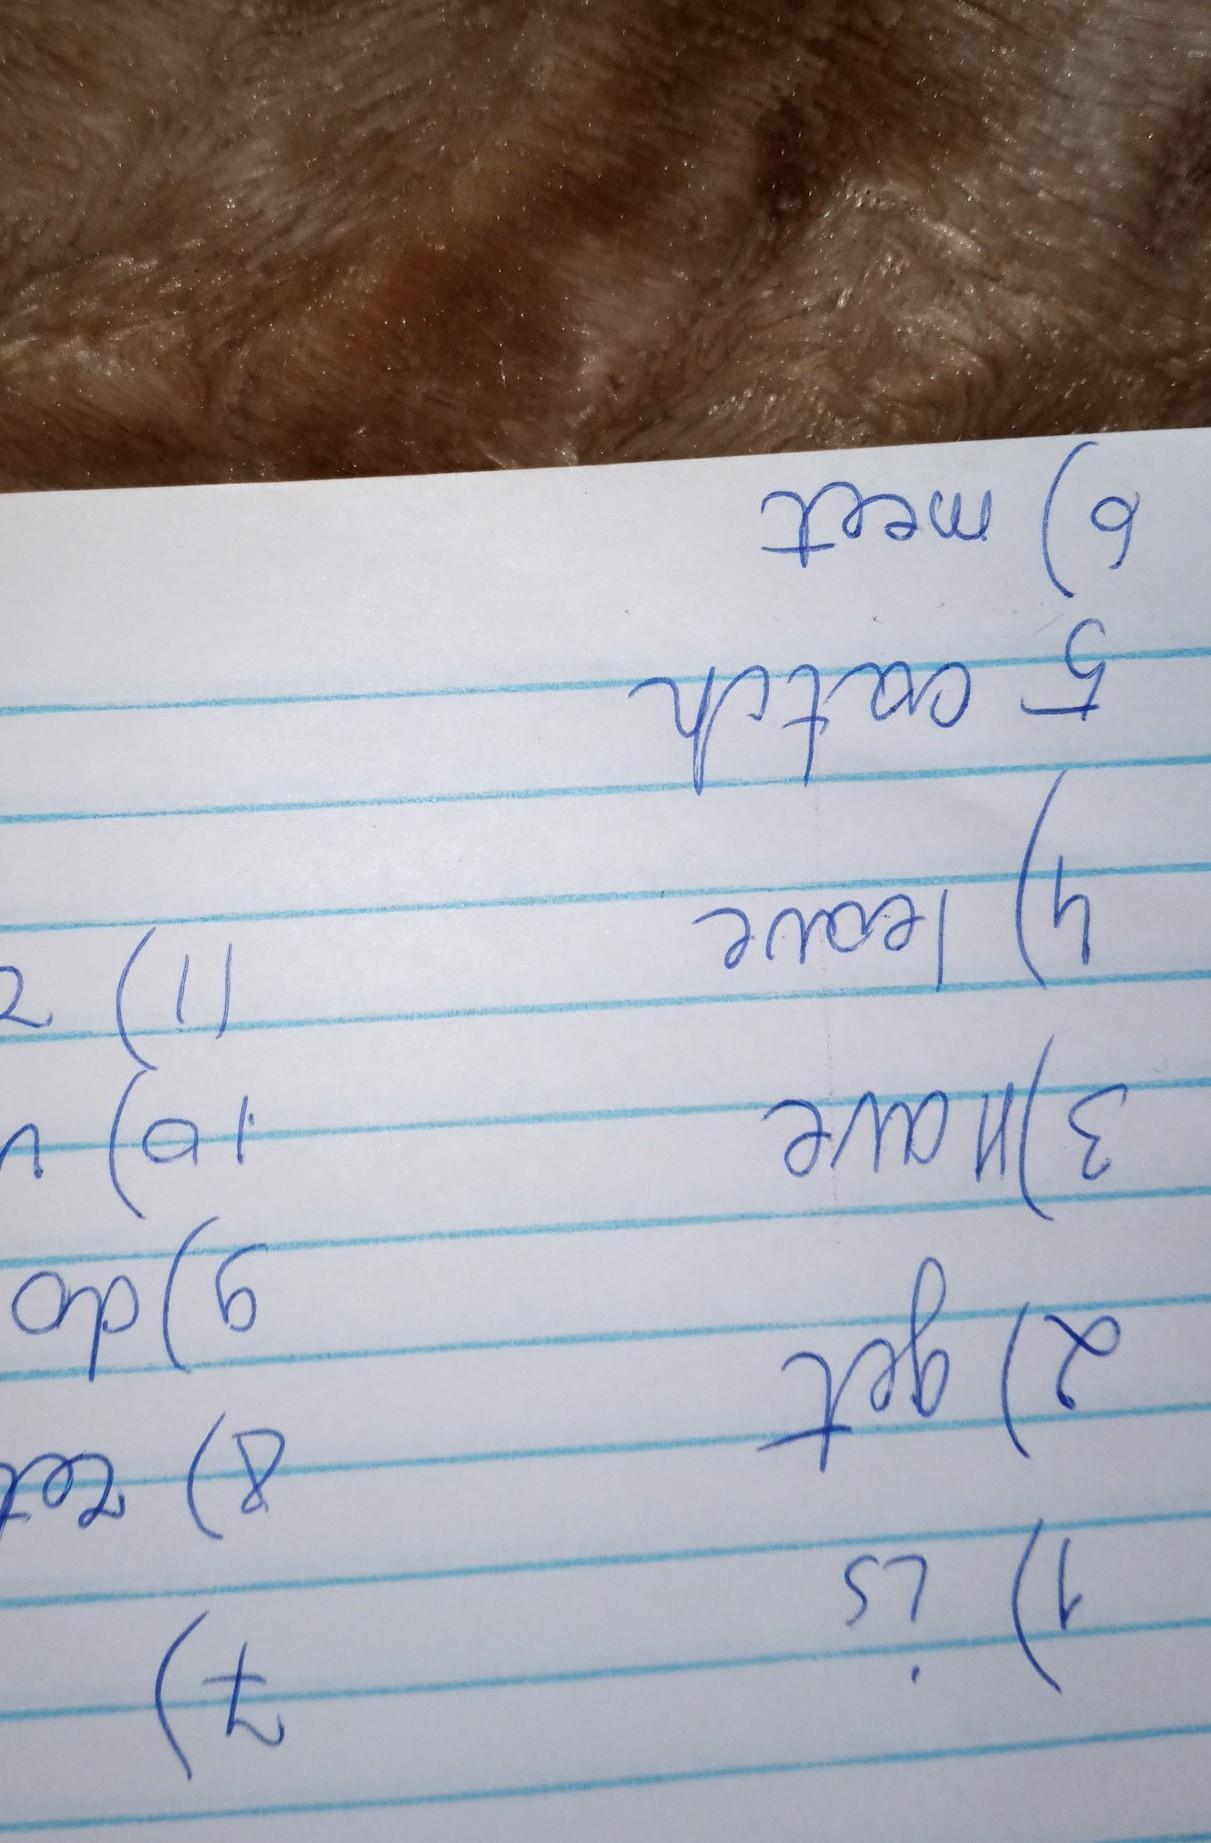 1) is
2) get
3) have
4) leave
5 catch
6) meet
7)
8)
9) do
10)
11)